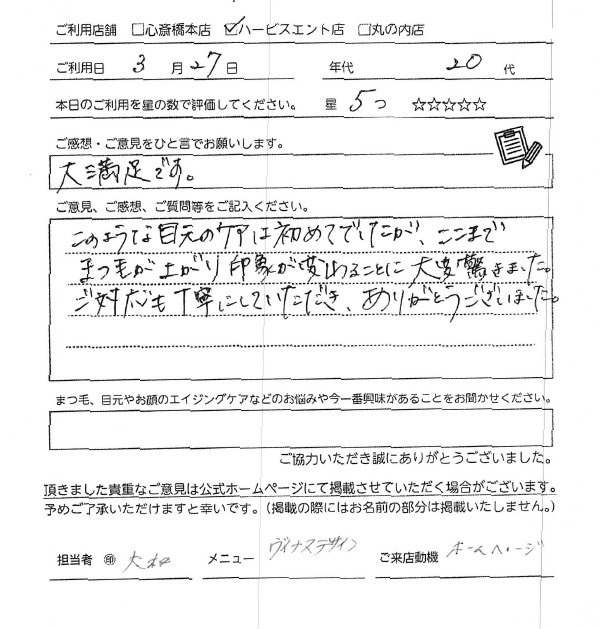 ご利用店舗 □心斎橋本店 ☑ハービスエント店 □丸の内店
ご利用日 3 月 27 日 年代 20 代
本日のご利用を星の数で評価してください。 星 5つ ☆☆☆☆☆
ご感想・ご意見をひと言でお願いします。
大満足です。
ご意見、ご感想、ご質問等をご記入ください。
このような目元のケアは初めてでしたが、ここまで
まつ毛が上がり印象が変わることに大変驚きました。
ご対応も丁寧にしていただき、ありがとうございました。
まつ毛、目元やお顔のエイジングケアなどのお悩みや今一番興味があることをお聞かせください。
ご協力いただき誠にありがとうございました。
頂きました貴重なご意見は公式ホームページにて掲載させていただく場合がございます。
予めご了承いただけますと幸いです。(掲載の際にはお名前の部分は掲載いたしません。)
担当者 ㊞ メニュー ヴィナスデザイン ご来店動機 ホームページ